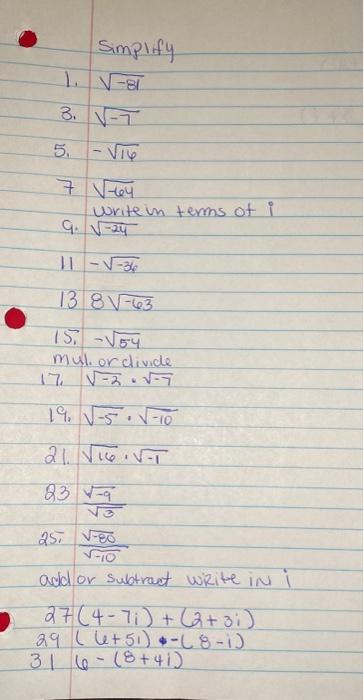 Simplify
1. √-81
3. √-7
5. -√16
7 √-64
write in terms of i
9. √-24
11 -√-36
13 8√-63
15. -√54
mul. or divide
17. √-2 • √-7
19. √-5 • √-10
21. √16 • √-1
23 √-9 / √3
25. √-80 / √-10
add or subtract WRite iN i
27 (4-7i) + (2+3i)
29 (6+5i) •-(8-i)
31 6 - (8+4i)